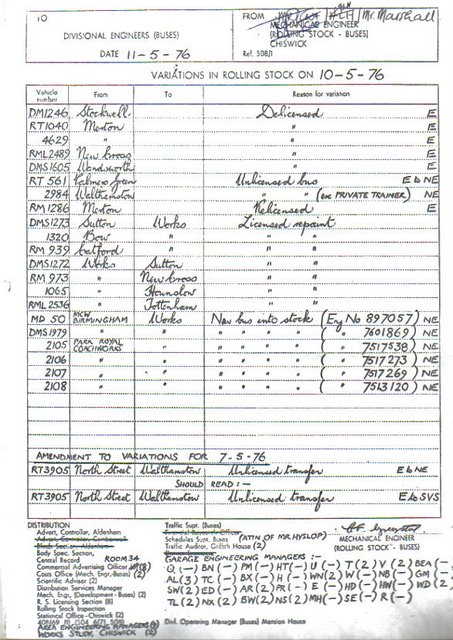 10
DIVISIONAL ENGINEERS (BUSES)
DATE 11-5-76
FROM Mr. Marshall
MECHANICAL ENGINEER
(ROLLING STOCK - BUSES)
CHISWICK
Ref. 508/1
VARIATIONS IN ROLLING STOCK ON 10-5-76
Vehicle number From To Reason for variation
DM1246 Stockwell Delicensed E
RT1040 Merton " E
4629 " " E
RML2489 New Cross " E
DMS1605 Wandsworth " E
RT 561 Palmers Green Unlicensed bus E to NE
2984 Walthamstow " " (ex PRIVATE TRAINER) NE
RM 1286 Merton Relicensed E
DMS1273 Sutton Works Licensed repaint
1320 Bow " " "
RM 939 Catford " " "
DMS1272 Works Sutton " "
RM 973 " New Cross " "
1065 " Hounslow " "
RML 2536 " Tottenham " "
MD 50 MCW BIRMINGHAM Works New bus into stock (Eng No 897057) NE
DMS1979 " " " " " " ( " 7601869) NE
2105 PARK ROYAL COACHWORKS " " " " " ( " 7517538) NE
2106 " " " " " " ( " 7517273) NE
2107 " " " " " " ( " 7517269) NE
2108 " " " " " " ( " 7513120) NE
AMENDMENT TO VARIATIONS FOR 7-5-76
RT3905 North Street Walthamstow Unlicensed transfer E to NE
SHOULD READ:-
RT3905 North Street Walthamstow Unlicensed transfer E to SVS
DISTRIBUTION
Advert. Controller, Aldenham
Body Spec. Section,
Central Record ROOM 34
Commercial Advertising Officer
Costs Office (Mech. Engr.-Buses) (2)
Scientific Adviser (2)
Distribution Services Manager
Mech. Engr. (Development - Buses)
R. S. Licensing Section (8)
Rolling Stock Inspection
Sectional Office-Chiswick (2)
AREA ENGINEERING MANAGERS
WORKS STUDY, CHISWICK (2)
Traffic Supt. (Buses)
Schedules Supt. Buses (ATTN OF MR HYSLOP)
Traffic Auditor, Griffith House (2)
MECHANICAL ENGINEER
(ROLLING STOCK - BUSES)
GARAGE ENGINEERING MANAGERS:-
Q (-) BN (-) PM (-) HT (-) U (-) T (2) V (2) BEA (-)
AL (3) TC (-) BX (-) H (-) WN (2) W (-) NB (-) GM (-)
SW (2) ED (-) AR (2) PR (-) E (-) HD (-) HW (-) WD (-)
TL (2) NX (2) BW (2) NS (2) MH (-) SE (-) R (-)
Dist. Operating Manager (Buses) Mansion House